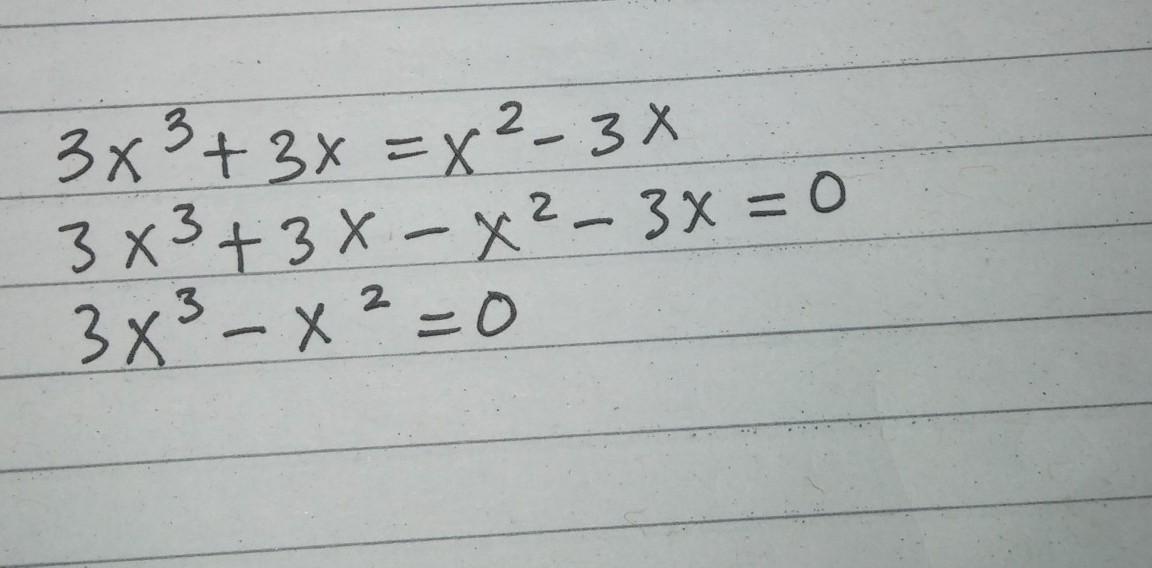 3x³+3x=x²-3x
3x³+3x-x²-3x=0
3x³-x²=0